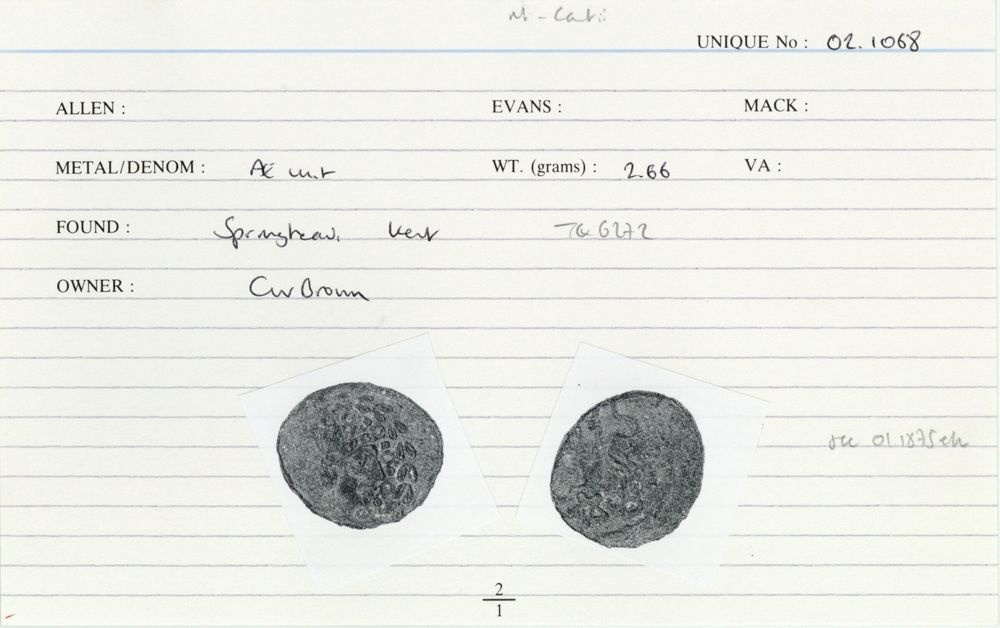 N - Cati
UNIQUE No : 02.1068
ALLEN : EVANS : MACK :
METAL/DENOM : Æ unit WT. (grams) : 2.66 VA :
FOUND : Springhead, Kent TQ 6272
OWNER : CW Brown
see 01.1875 etc
2
1